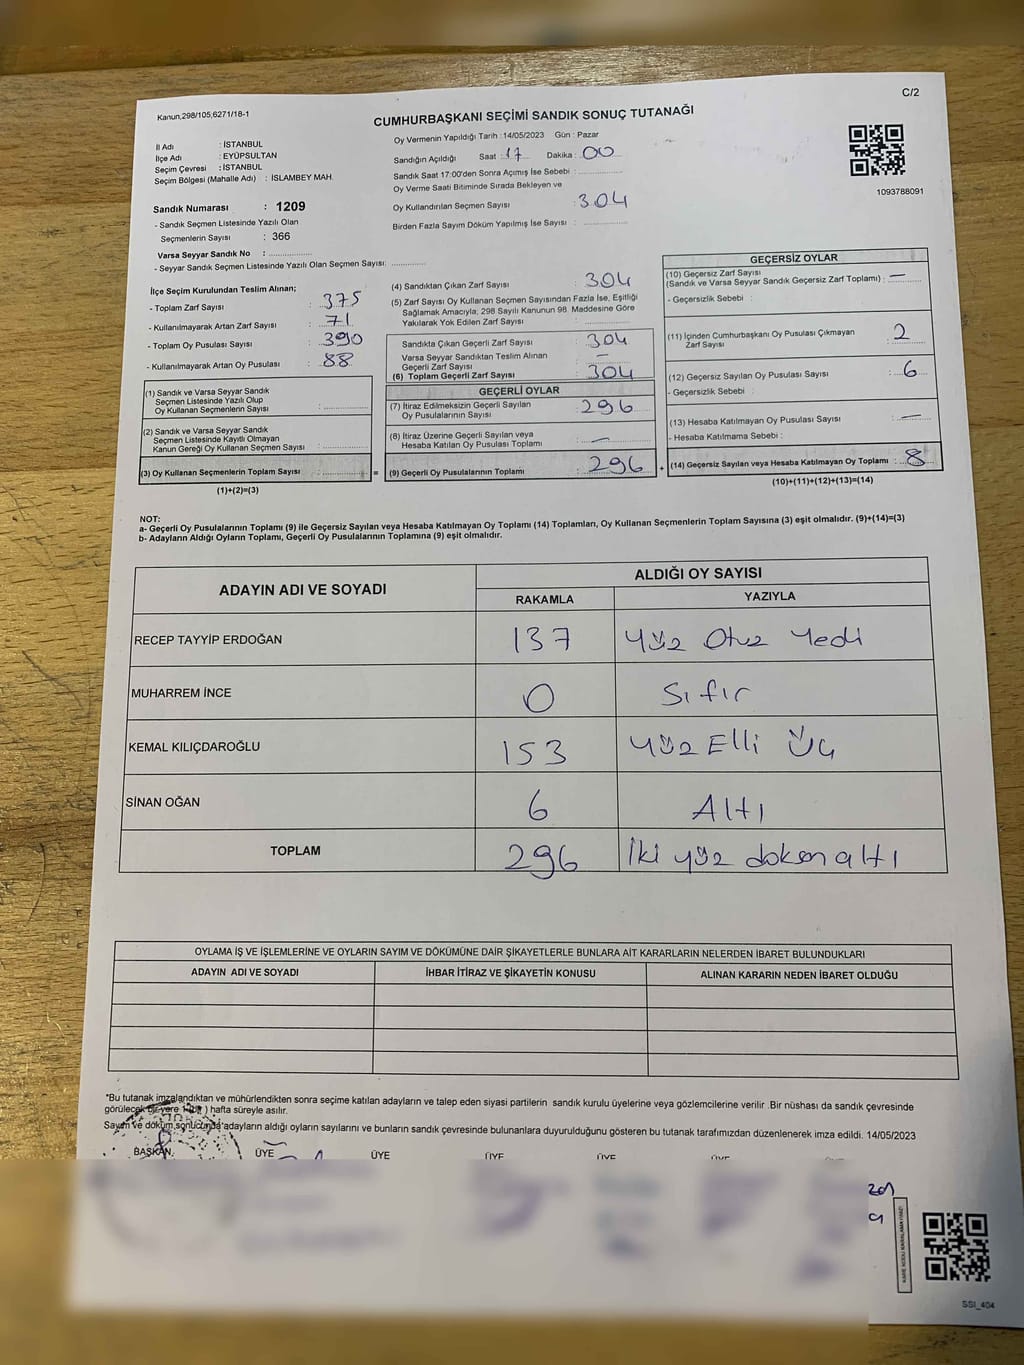 C/2
Kanun,298/105,6271/18-1
CUMHURBAŞKANI SEÇİMİ SANDIK SONUÇ TUTANAĞI
İl Adı : İSTANBUL
İlçe Adı : EYÜPSULTAN
Seçim Çevresi : İSTANBUL
Seçim Bölgesi (Mahalle Adı) : İSLAMBEY MAH.
Oy Vermenin Yapıldığı Tarih :14/05/2023 Gün : Pazar
Sandığın Açıldığı Saat : 17 Dakika : 00
Sandık Saat 17:00'den Sonra Açımış İse Sebebi :
Oy Verme Saati Bitiminde Sırada Bekleyen ve
Oy Kullandırılan Seçmen Sayısı : 304
Birden Fazla Sayım Döküm Yapılmış İse Sayısı :
1093788091
Sandık Numarası : 1209
- Sandık Seçmen Listesinde Yazılı Olan
Seçmenlerin Sayısı : 366
Varsa Seyyar Sandık No :
- Seyyar Sandık Seçmen Listesinde Yazılı Olan Seçmen Sayısı:
İlçe Seçim Kurulundan Teslim Alınan;
- Toplam Zarf Sayısı : 375
- Kullanılmayarak Artan Zarf Sayısı : 71
- Toplam Oy Pusulası Sayısı : 390
- Kullanılmayarak Artan Oy Pusulası : 88
(1) Sandık ve Varsa Seyyar Sandık
Seçmen Listesinde Yazılı Olup
Oy Kullanan Seçmenlerin Sayısı :
(2) Sandık ve Varsa Seyyar Sandık
Seçmen Listesinde Kayıtlı Olmayan
Kanun Gereği Oy Kullanan Seçmen Sayısı :
(3) Oy Kullanan Seçmenlerin Toplam Sayısı :
(1)+(2)=(3)
=
(4) Sandıktan Çıkan Zarf Sayısı : 304
(5) Zarf Sayısı Oy Kullanan Seçmen Sayısından Fazla İse, Eşitliği
Sağlamak Amacıyla; 298 Sayılı Kanunun 98. Maddesine Göre
Yakılarak Yok Edilen Zarf Sayısı :
Sandıkta Çıkan Geçerli Zarf Sayısı : 304
Varsa Seyyar Sandıktan Teslim Alınan
Geçerli Zarf Sayısı : —
(6) Toplam Geçerli Zarf Sayısı : 304
GEÇERLİ OYLAR
(7) İtiraz Edilmeksizin Geçerli Sayılan
Oy Pusulalarının Sayısı : 296
(8) İtiraz Üzerine Geçerli Sayılan veya
Hesaba Katılan Oy Pusulası Toplamı : —
(9) Geçerli Oy Pusulalarının Toplamı : 296
+
GEÇERSİZ OYLAR
(10) Geçersiz Zarf Sayısı
(Sandık ve Varsa Seyyar Sandık Geçersiz Zarf Toplamı) : —
- Geçersizlik Sebebi :
(11) İçinden Cumhurbaşkanı Oy Pusulası Çıkmayan
Zarf Sayısı : 2
(12) Geçersiz Sayılan Oy Pusulası Sayısı : 6
- Geçersizlik Sebebi :
(13) Hesaba Katılmayan Oy Pusulası Sayısı : —
- Hesaba Katılmama Sebebi :
(14) Geçersiz Sayılan veya Hesaba Katılmayan Oy Toplamı : 8
(10)+(11)+(12)+(13)=(14)
NOT:
a- Geçerli Oy Pusulalarının Toplamı (9) ile Geçersiz Sayılan veya Hesaba Katılmayan Oy Toplamı (14) Toplamları, Oy Kullanan Seçmenlerin Toplam Sayısına (3) eşit olmalıdır. (9)+(14)=(3)
b- Adayların Aldığı Oyların Toplamı, Geçerli Oy Pusulalarının Toplamına (9) eşit olmalıdır.
ADAYIN ADI VE SOYADI
ALDIĞI OY SAYISI
RAKAMLA YAZIYLA
RECEP TAYYİP ERDOĞAN 137 Yüz Otuz Yedi
MUHARREM İNCE 0 Sıfır
KEMAL KILIÇDAROĞLU 153 Yüz Elli Üç
SİNAN OĞAN 6 Altı
TOPLAM 296 İki yüz doksan altı
OYLAMA İŞ VE İŞLEMLERİNE VE OYLARIN SAYIM VE DÖKÜMÜNE DAİR ŞİKAYETLERLE BUNLARA AİT KARARLARIN NELERDEN İBARET BULUNDUKLARI
ADAYIN ADI VE SOYADI İHBAR İTİRAZ VE ŞİKAYETİN KONUSU ALINAN KARARIN NEDEN İBARET OLDUĞU
*Bu tutanak imzalandıktan ve mühürlendikten sonra seçime katılan adayların ve talep eden siyasi partilerin sandık kurulu üyelerine veya gözlemcilerine verilir .Bir nüshası da sandık çevresinde
görülecek bir yere 1 ) hafta süreyle asılır.
Sayım ve döküm sonucunda adayların aldığı oyların sayılarını ve bunların sandık çevresinde bulunanlara duyurulduğunu gösteren bu tutanak tarafımızdan düzenlenerek imza edildi. 14/05/2023
BAŞKAN ÜYE ÜYE ÜYE ÜYE ÜYE
SSI_404